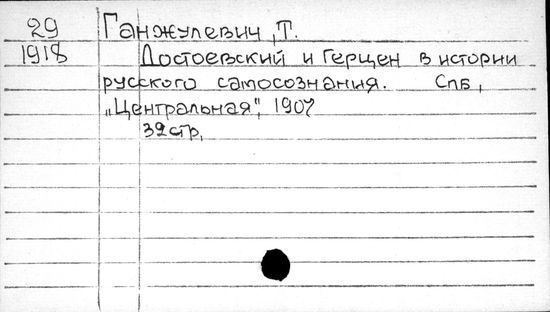 29 Ганжулевич, Т.
1918 Достоевский и Герцен в истории
русского самосознания. Спб,
„Центральная", 1907
39стр,